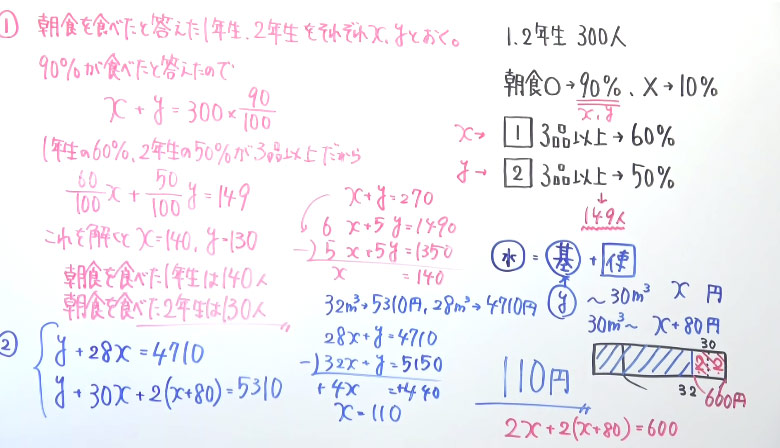 ① 朝食を食べたと答えた1年生、2年生をそれぞれx、yとおく。
90%が食べたと答えたので
x + y = 300 × 90/100
1年生の60%、2年生の50%が3品以上だから
60/100 x + 50/100 y = 149
これを解くと x=140, y=130
朝食を食べた1年生は140人
朝食を食べた2年生は130人
x+y=270
6x+5y=1490
-)5x+5y=1350
x =140
1.2年生 300人
朝食○→90%、×→10%
x, y
x→ 1 3品以上→60%
y→ 2 3品以上→50%
↓
149人
② y+28x=4710
y+30x+2(x+80)=5310
32m³→5310円, 28m³→4710円
28x+y=4710
-)32x+y=5150
+4x =+440
x=110
110円
水 = 基 + 使
y ~30m³ x 円
30m³~ x+80円
30
2 2
32 600円
2x+2(x+80)=600